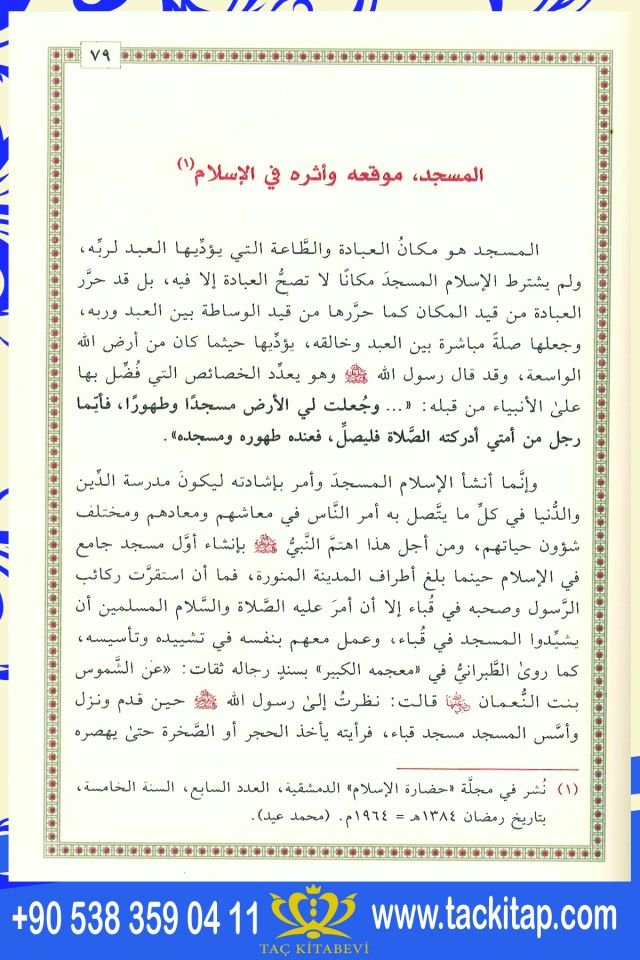 ٧٩
المسجد، موقعه وأثره في الإسلام(١)
المسجد هو مكانُ العبادة والطَّاعة التي يؤدِّيها العبد لربِّه،
ولم يشترط الإسلام المسجدَ مكانًا لا تصحُّ العبادة إلا فيه، بل قد حرَّر
العبادة من قيد المكان كما حرَّرها من قيد الوساطة بين العبد وربه،
وجعلها صلةً مباشرة بين العبد وخالقه، يؤدِّيها حيثما كان من أرض الله
الواسعة، وقد قال رسول الله ﷺ وهو يعدِّد الخصائص التي فُضِّل بها
علىٰ الأنبياء من قبله: «... وجُعلت لي الأرض مسجدًا وطهورًا، فأيّما
رجل من أمتي أدركته الصَّلاة فليصلِّ، فعنده طهوره ومسجده».
وإنَّما أنشأ الإسلام المسجدَ وأمر بإشادته ليكونَ مدرسة الدِّين
والدُّنيا في كلِّ ما يتَّصل به أمر النَّاس في معاشهم ومعادهم ومختلف
شؤون حياتهم، ومن أجل هذا اهتمَّ النَّبيُّ ﷺ بإنشاء أوَّل مسجد جامع
في الإسلام حينما بلغ أطراف المدينة المنورة، فما أن استقرَّت ركائب
الرَّسول وصحبه في قُباء إلا أن أمرَ عليه الصَّلاة والسَّلام المسلمين أن
يشيِّدوا المسجد في قُباء، وعمل معهم بنفسه في تشييده وتأسيسه،
كما روىٰ الطَّبرانيُّ في «معجمه الكبير» بسندٍ رجاله ثقات: «عن الشَّموس
بنت النُّعمان رضي الله عنها قالت: نظرتُ إلىٰ رسول الله ﷺ حين قدم ونزل
وأسَّس المسجد مسجد قباء، فرأيته يأخذ الحجر أو الصَّخرة حتىٰ يهصره
(١) نُشر في مجلَّة «حضارة الإسلام» الدمشقية، العدد السابع، السنة الخامسة،
بتاريخ رمضان ١٣٨٤هـ = ١٩٦٤م. (محمد عيد).
+90 538 359 04 11
TAÇ KİTABEVİ
www.tackitap.com